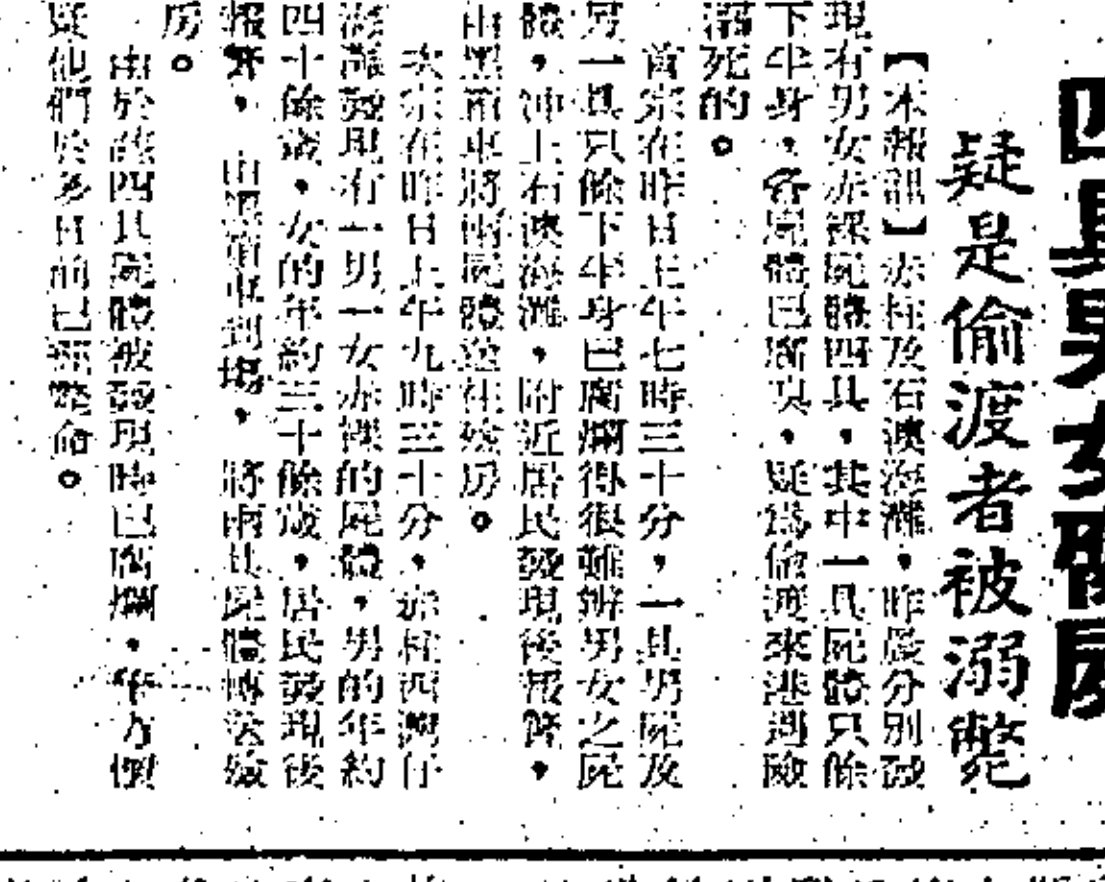 四具男女碎屍
疑是偷渡者被溺斃
【本報訊】赤柱及石澳海灘，昨晨分別發
現有男女赤裸屍體四具，其中一具屍體只餘
下半身，各屍體已漸臭，疑為偷渡來港遇險
溺死的。
首宗在昨日上午七時三十分，一具男屍及
另一具只餘下半身已腐爛得很難辨男女之屍
體，沖上石澳海灘，附近居民發現後報警，
由黑箱車將兩屍體送往殮房。
次宗在昨日上午九時三十分，赤柱西灣仔
海灘發現有一男一女赤裸的屍體，男的年約
四十餘歲，女的年約三十餘歲，居民發現後
報警，由黑箱車到場，將兩具屍體轉送殮
房。
由於該四具屍體被發現時已腐爛，警方懷
疑他們於多日前已經斃命。